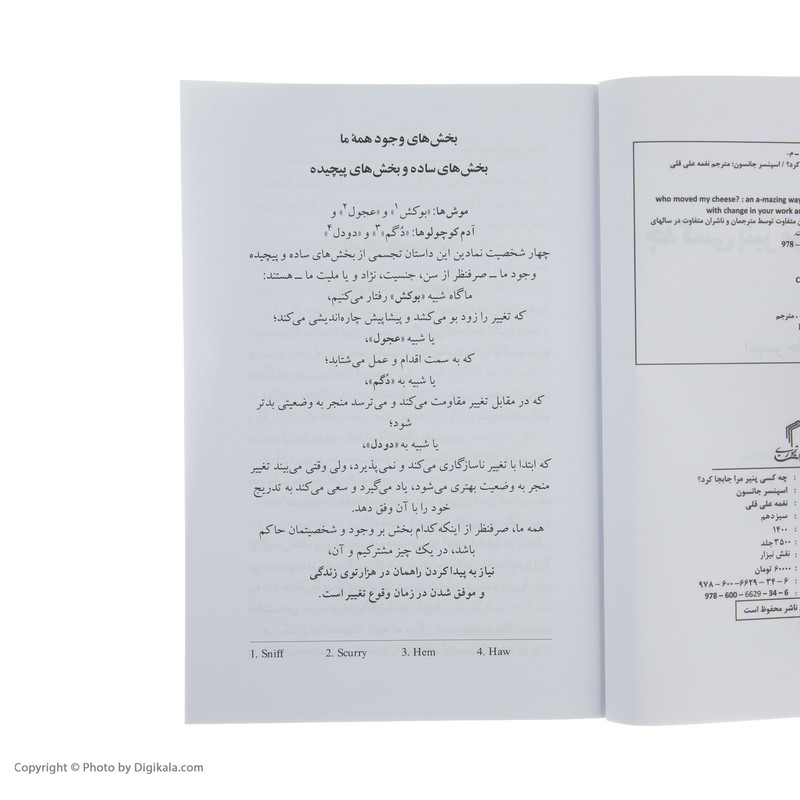 بخش‌های وجود همهٔ ما
بخش‌های ساده و بخش‌های پیچیده
موش‌ها: «بوکش۱» و «عجول۲» و
آدم‌کوچولوها: «دُگم»۳ و «دودل۴»
چهار شخصیت نمادین این داستان تجسمی از بخش‌های ساده و پیچیده
وجود ما ـ صرفنظر از سن، جنسیت، نژاد و یا ملیت ما ـ هستند:
ماگاه شبیه «بوکش» رفتار می‌کنیم،
که تغییر را زود بو می‌کشد و پیشاپیش چاره‌اندیشی می‌کند؛
یا شبیه «عجول»،
که به سمت اقدام و عمل می‌شتابد؛
یا شبیه به «دُگم»،
که در مقابل تغییر مقاومت می‌کند و می‌ترسد منجر به وضعیتی بدتر
شود؛
یا شبیه به «دودل»،
که ابتدا با تغییر ناسازگاری می‌کند و نمی‌پذیرد، ولی وقتی می‌بیند تغییر
منجر به وضعیت بهتری می‌شود، یاد می‌گیرد و سعی می‌کند به تدریج
خود را با آن وفق دهد.
همه ما، صرفنظر از اینکه کدام بخش بر وجود و شخصیتمان حاکم
باشد، در یک چیز مشترکیم و آن،
نیاز به پیدا کردن راهمان در هزارتوی زندگی
و موفق شدن در زمان وقوع تغییر است.
1. Sniff 2. Scurry 3. Hem 4. Haw
کرد؟ / اسپنسر جانسون؛ مترجم نغمه علی قلی
who moved my cheese? : an a-mazing way
with change in your work a
متفاوت توسط مترجمان و ناشران متفاوت در سالهای
978 –
، مترجم
: چه کسی پنیر مرا جابجا کرد؟
: اسپنسر جانسون
: نغمه علی قلی
: سیزدهم
: ۱۴۰۰
: ۳۵۰۰ جلد
: نقش نیزار
: ۶۰۰۰۰ تومان
: ۹۷۸ – ۶۰۰ – ۶۶۲۹ – ۳۴ – ۶
978 – 600 – 6629 – 34 – 6
ناشر محفوظ است
Copyright © Photo by Digikala.com